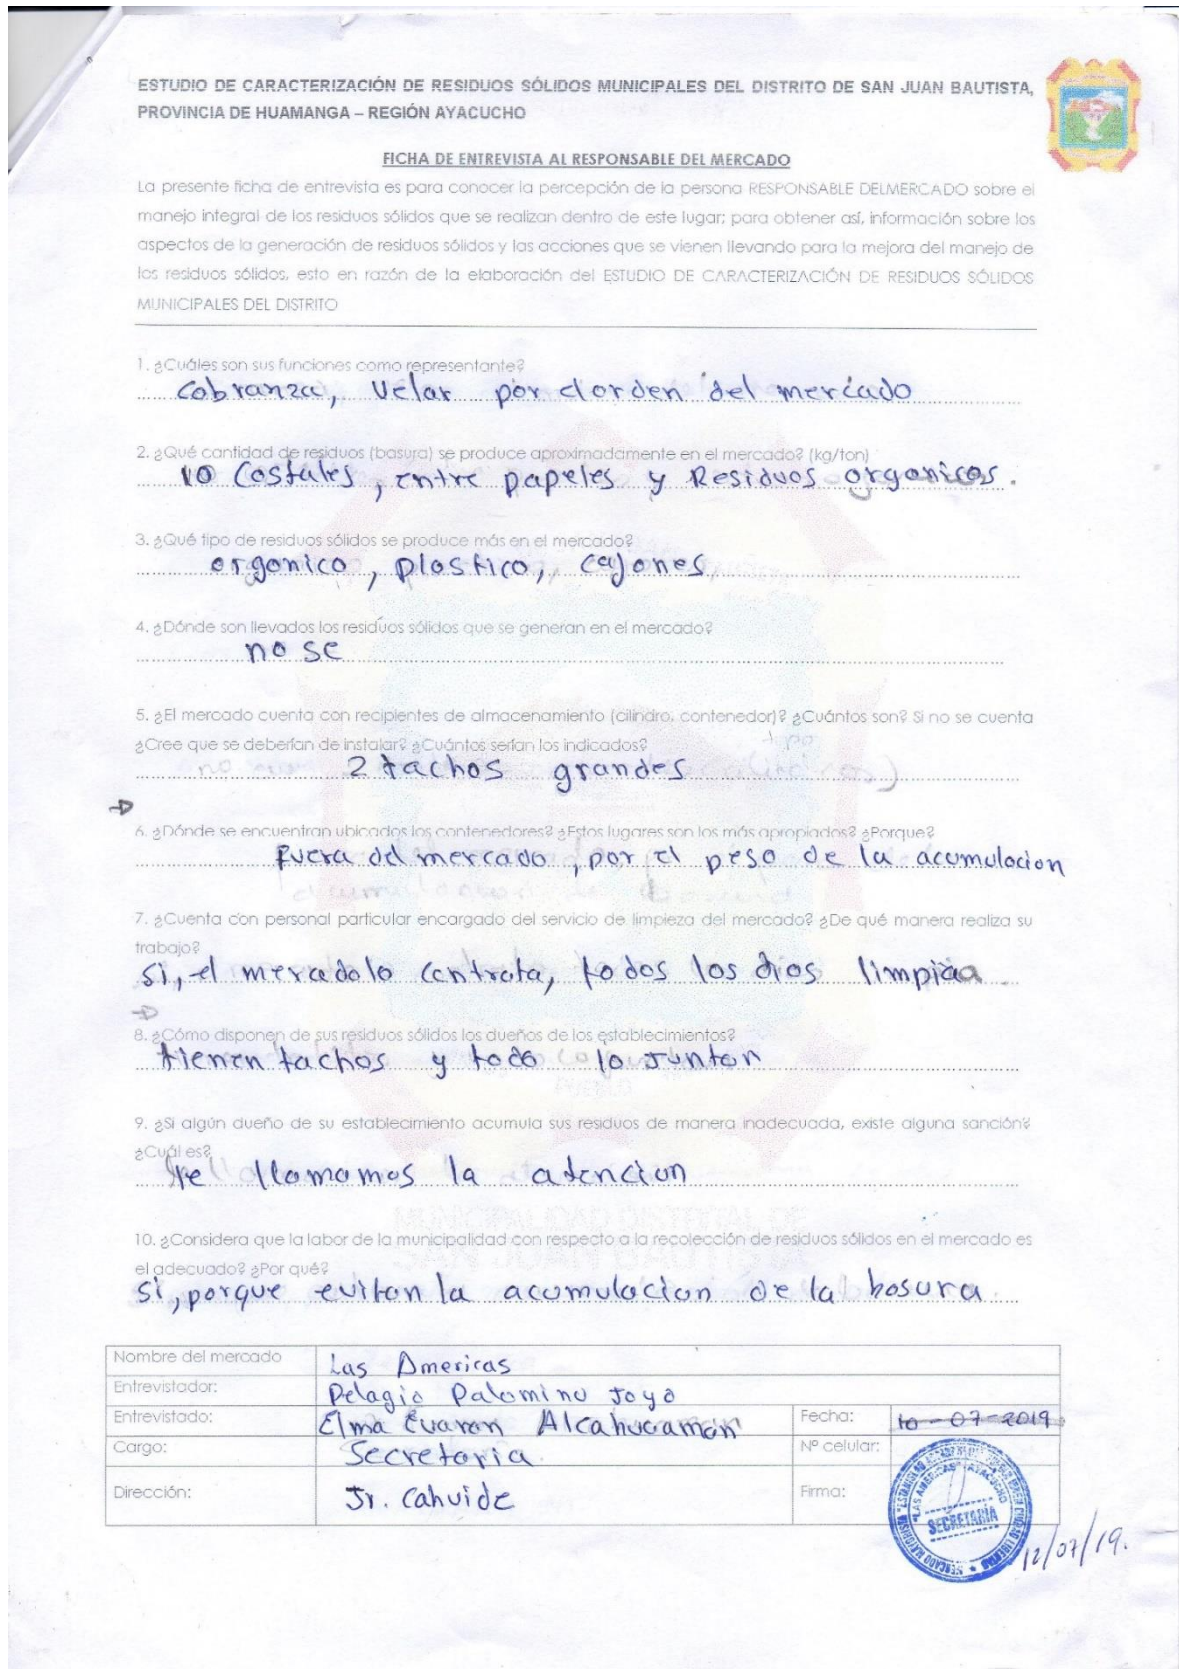 ESTUDIO DE CARACTERIZACIÓN DE RESIDUOS SÓLIDOS MUNICIPALES DEL DISTRITO DE SAN JUAN BAUTISTA,
PROVINCIA DE HUAMANGA – REGIÓN AYACUCHO
FICHA DE ENTREVISTA AL RESPONSABLE DEL MERCADO
La presente ficha de entrevista es para conocer la percepción de la persona RESPONSABLE DELMERCADO sobre el
manejo integral de los residuos sólidos que se realizan dentro de este lugar; para obtener así, información sobre los
aspectos de la generación de residuos sólidos y las acciones que se vienen llevando para la mejora del manejo de
los residuos sólidos, esto en razón de la elaboración del ESTUDIO DE CARACTERIZACIÓN DE RESIDUOS SÓLIDOS
MUNICIPALES DEL DISTRITO
1. ¿Cuáles son sus funciones como representante?
Cobranza, Velar por el orden del mercado
2. ¿Qué cantidad de residuos (basura) se produce aproximadamente en el mercado? (kg/ton)
10 Costales, entre papeles y Residuos organicos.
3. ¿Qué tipo de residuos sólidos se produce más en el mercado?
organico, plastico, cajones
4. ¿Dónde son llevados los residuos sólidos que se generan en el mercado?
no se
5. ¿El mercado cuenta con recipientes de almacenamiento (cilindro, contenedor)? ¿Cuántos son? Si no se cuenta
¿Cree que se deberían de instalar? ¿Cuántos serían los indicados?
2 tachos grandes
6. ¿Dónde se encuentran ubicados los contenedores? ¿Estos lugares son los más apropiados? ¿Porque?
fuera del mercado, por el peso de la acumulacion
7. ¿Cuenta con personal particular encargado del servicio de limpieza del mercado? ¿De qué manera realiza su
trabajo?
si, el mercado lo contrata, todos los dias limpia
8. ¿Cómo disponen de sus residuos sólidos los dueños de los establecimientos?
tienen tachos y todo lo juntan
9. ¿Si algún dueño de su establecimiento acumula sus residuos de manera inadecuada, existe alguna sanción?
¿Cuál es?
le llamamos la atencion
10. ¿Considera que la labor de la municipalidad con respecto a la recolección de residuos sólidos en el mercado es
el adecuado? ¿Por qué?
si, porque evitan la acumulacion de la basura
Nombre del mercado Las Americas
Entrevistador: Pelagio Palomino Joyo
Entrevistado: Elma Alcahuaman Fecha: 10-07-2019
Cargo: Secretaria Nº celular:
Dirección: Jr. Cahuide Firma:
"LAS AMERICAS" AYACUCHO
SECRETARÍA
12/07/19.